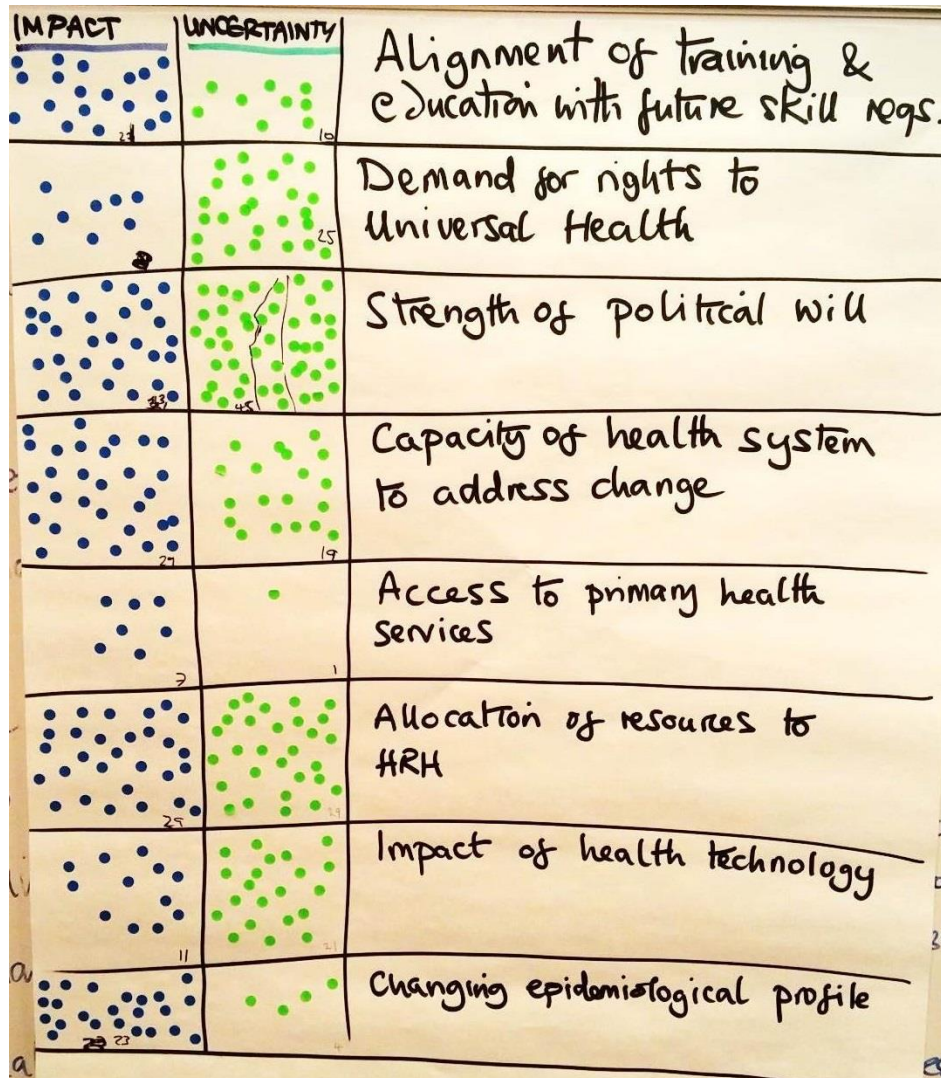 IMPACT UNCERTAINTY
Alignment of training &
education with future skill reqs.
10
Demand for rights to
Universal Health
25
Strength of political will
33
45
Capacity of health system
to address change
19
Access to primary health
services
7 1
Allocation of resources to
HRH
29 29
Impact of health technology
11 21
Changing epidemiological profile
23 4